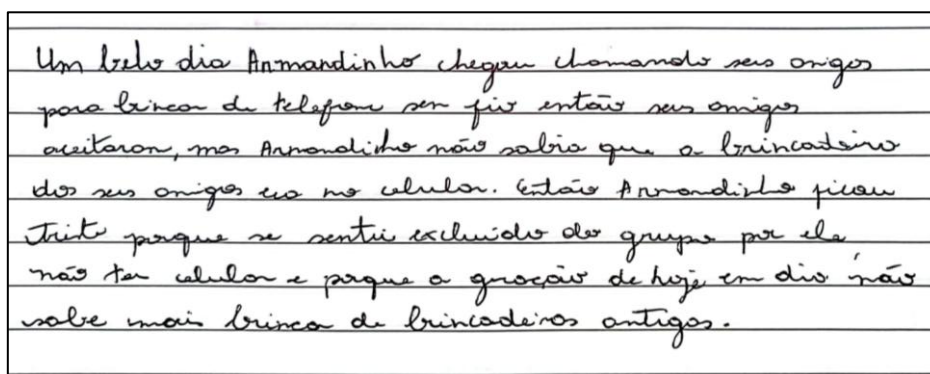 Um belo dia Armandinho chegou chamando seus amigos
para brincar de telefone sem fio então seus amigos
aceitaram, mas Armandinho não sabia que a brincadeira
dos seus amigos era no celular. Então Armandinho ficou
triste porque se sentiu excluido do grupo por ele
não ter celular e porque a geração de hoje em dia não
sabe mais brinca de brincadeiras antigas.